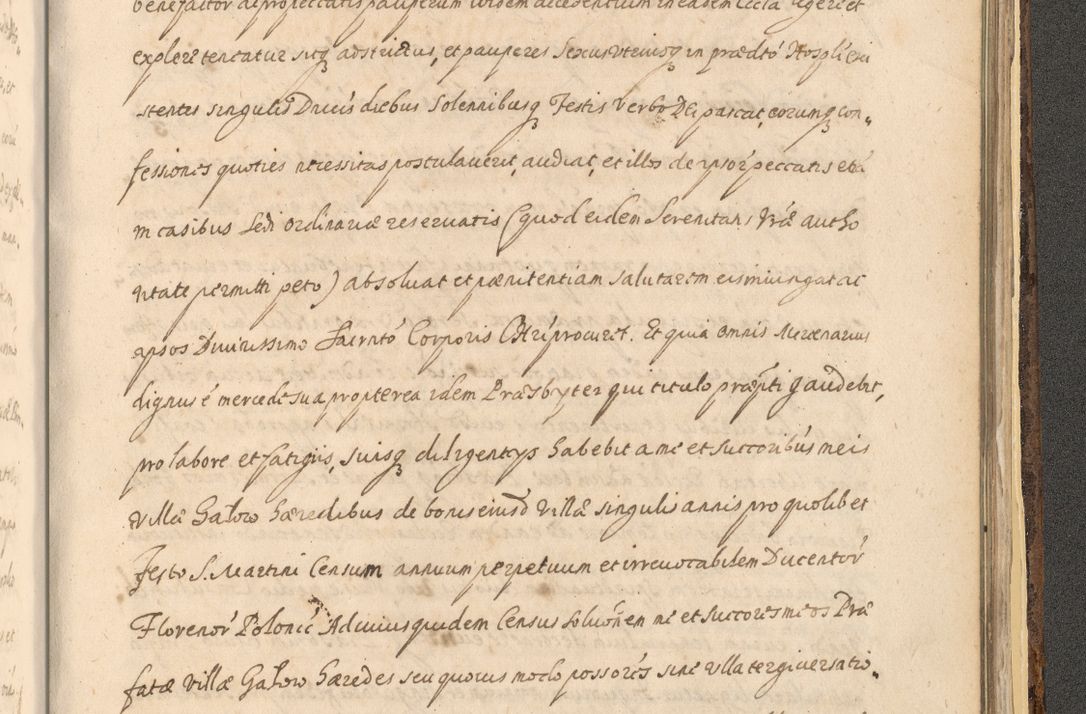 benefactor ac pro peccatis pauperum ibidem accedentium in eadem Eccla legere et
explere teneatur sitq adstrictus, et pauperes Sexus utriusq in prædto Hospli exi
stentes singulis Dnicis diebus Solennibusq Festis Verbo Dei pascat, eorumq con„
fessiones quoties necessitas postulaverit, audiat, et illos de ipsor peccatis etiã
in casibus Sedi Ordinariæ reservatis (quod eidem Serenitatis Vræ autho
ritate permitti peto) absolvat et pœnitentiam salutarem eis iniungat ac
ipsos Divinissimo Sacrnto Corporis Chri procuret. Et quia omnis Mercenarius
dignus é mercede sua propterea idem Præsbyter qui titulo præfti gaudebit,
pro labore et fatigiis, suisq diligentys habebit a me et succoribus meis
Villæ Gałow hæredibus de bonis eiusd Villæ singulis annis pro quolibet
Festo S. Martini Censum annuum perpetuum et irrevocabilem Ducentor
Florenor Polonic Ad cuius quidem Census solvonem me et succores meos Præ
fatæ Villæ Gałow hæredes seu quovis modo possores sine ulla tergiversatio„